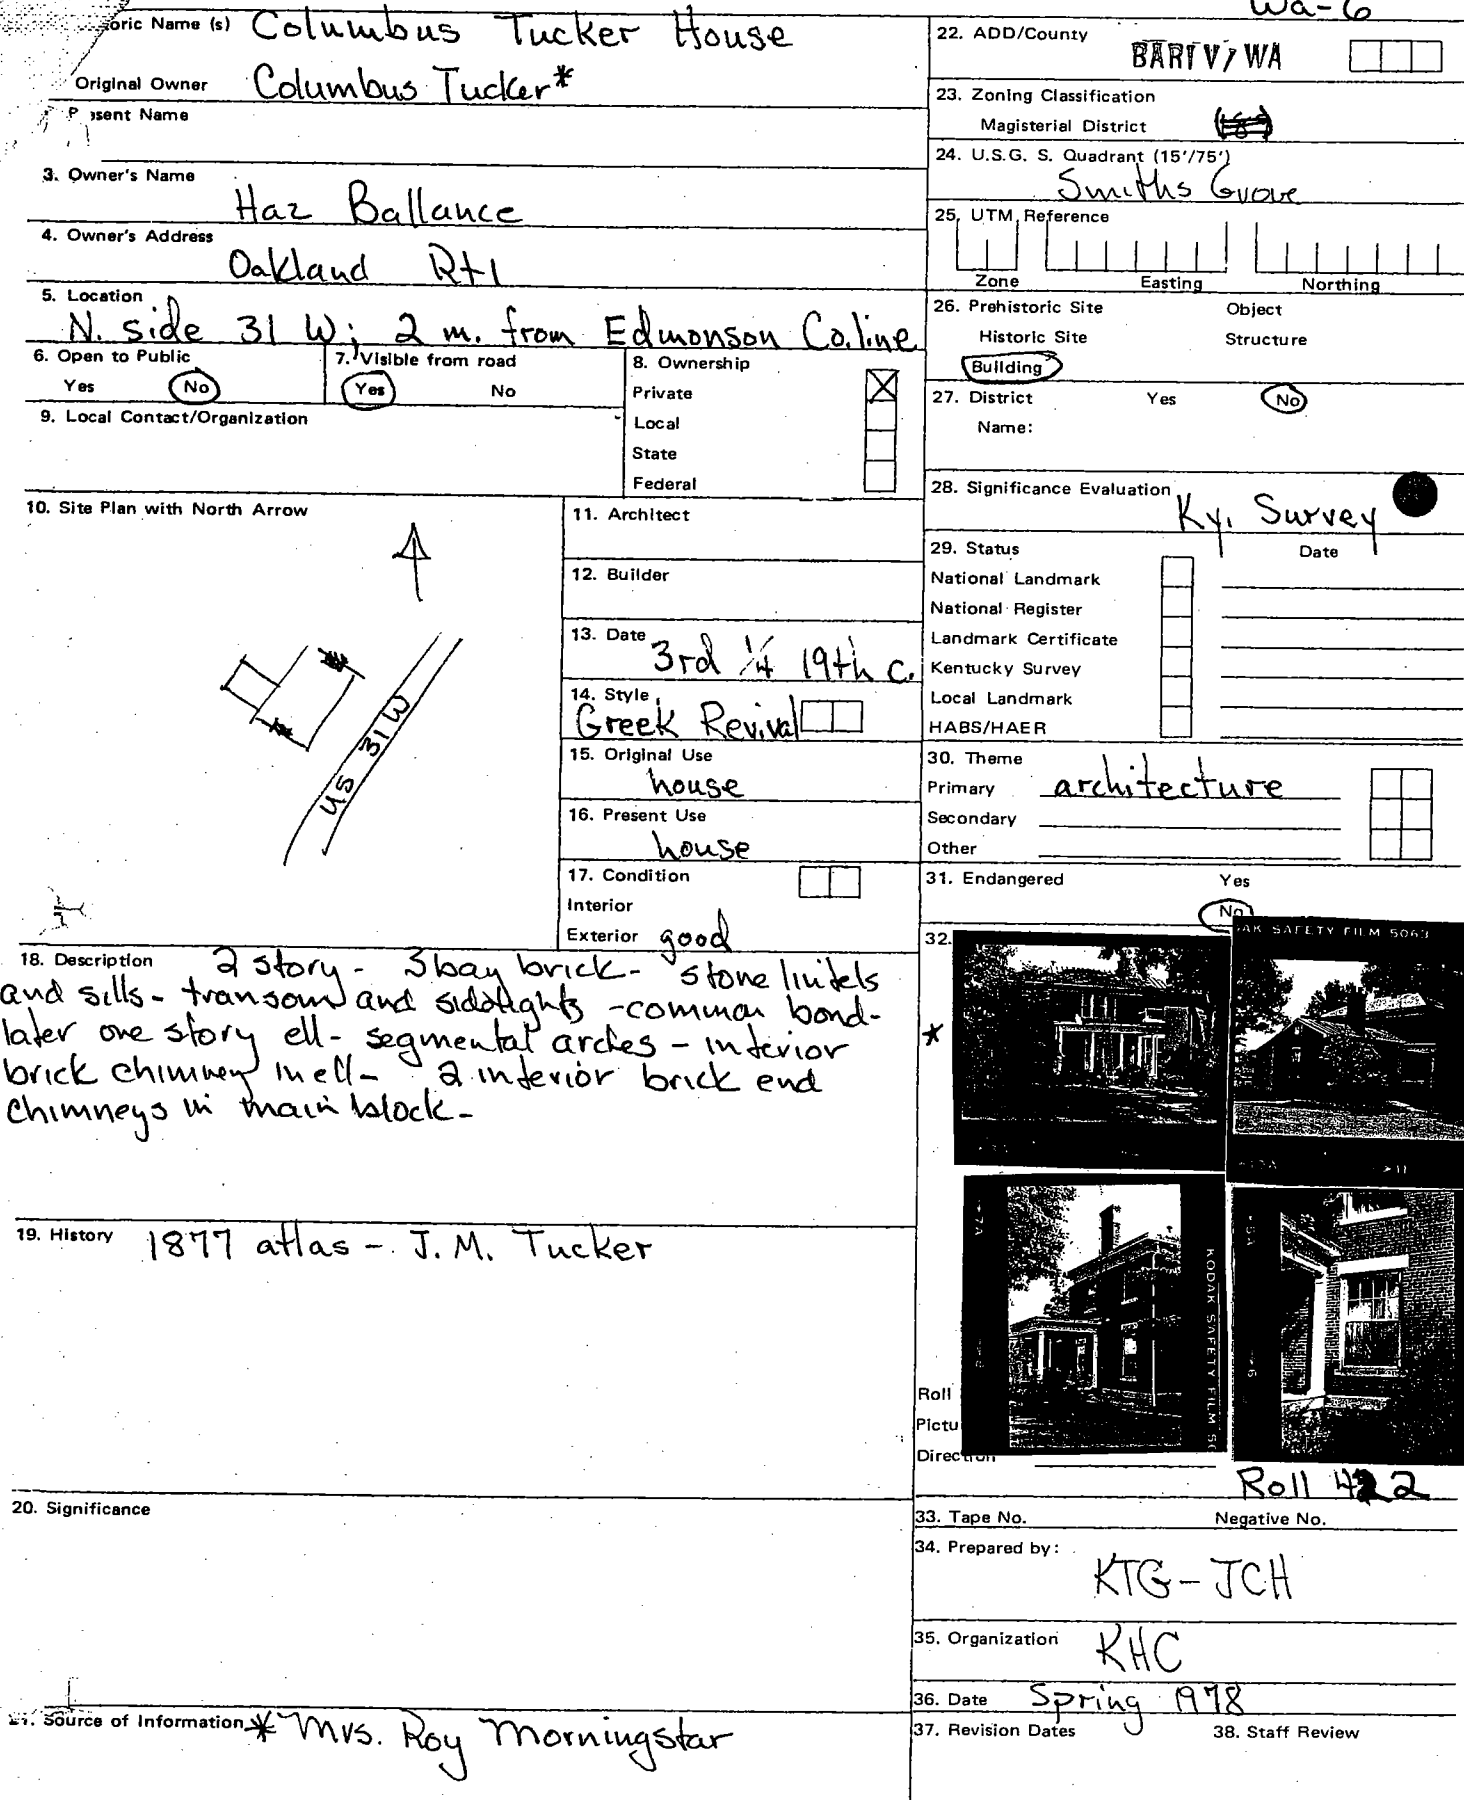 Wa-6
oric Name (s) Columbus Tucker House
Original Owner Columbus Tucker*
sent Name
3. Owner's Name
Haz Ballance
4. Owner's Address
Oakland Rt 1
5. Location
N. side 31 W; 2 m. from Edmonson Co. line
6. Open to Public
Yes No
7. Visible from road
Yes No
8. Ownership
Private
Local
State
Federal
9. Local Contact/Organization
10. Site Plan with North Arrow
US 31 W
11. Architect
12. Builder
13. Date
3rd 1/4 19th c.
14. Style
Greek Revival
15. Original Use
house
16. Present Use
house
17. Condition
Interior
Exterior good
18. Description 2 story - 3 bay brick - stone lintels
and sills - transom and sidelights - common bond -
later one story ell - segmental arches - interior
brick chimney in ell - 2 interior brick end
chimneys in main block -
19. History 1877 atlas - J. M. Tucker
20. Significance
Source of Information * Mrs. Roy Morningstar
22. ADD/County
WA
23. Zoning Classification
Magisterial District
24. U.S.G. S. Quadrant (15'/75')
Smiths Grove
25. UTM Reference
Zone Easting Northing
26. Prehistoric Site Object
Historic Site Structure
Building
27. District Yes No
Name:
28. Significance Evaluation
Ky. Survey
29. Status Date
National Landmark
National Register
Landmark Certificate
Kentucky Survey
Local Landmark
HABS/HAER
30. Theme
Primary architecture
Secondary
Other
31. Endangered Yes
No
32.
*
AK SAFETY FILM 5063
KODAK SAFETY FILM 50
Roll
Pictu
Direction
Roll 422
33. Tape No. Negative No.
34. Prepared by:
KTG - JCH
35. Organization KHC
36. Date Spring 1978
37. Revision Dates 38. Staff Review